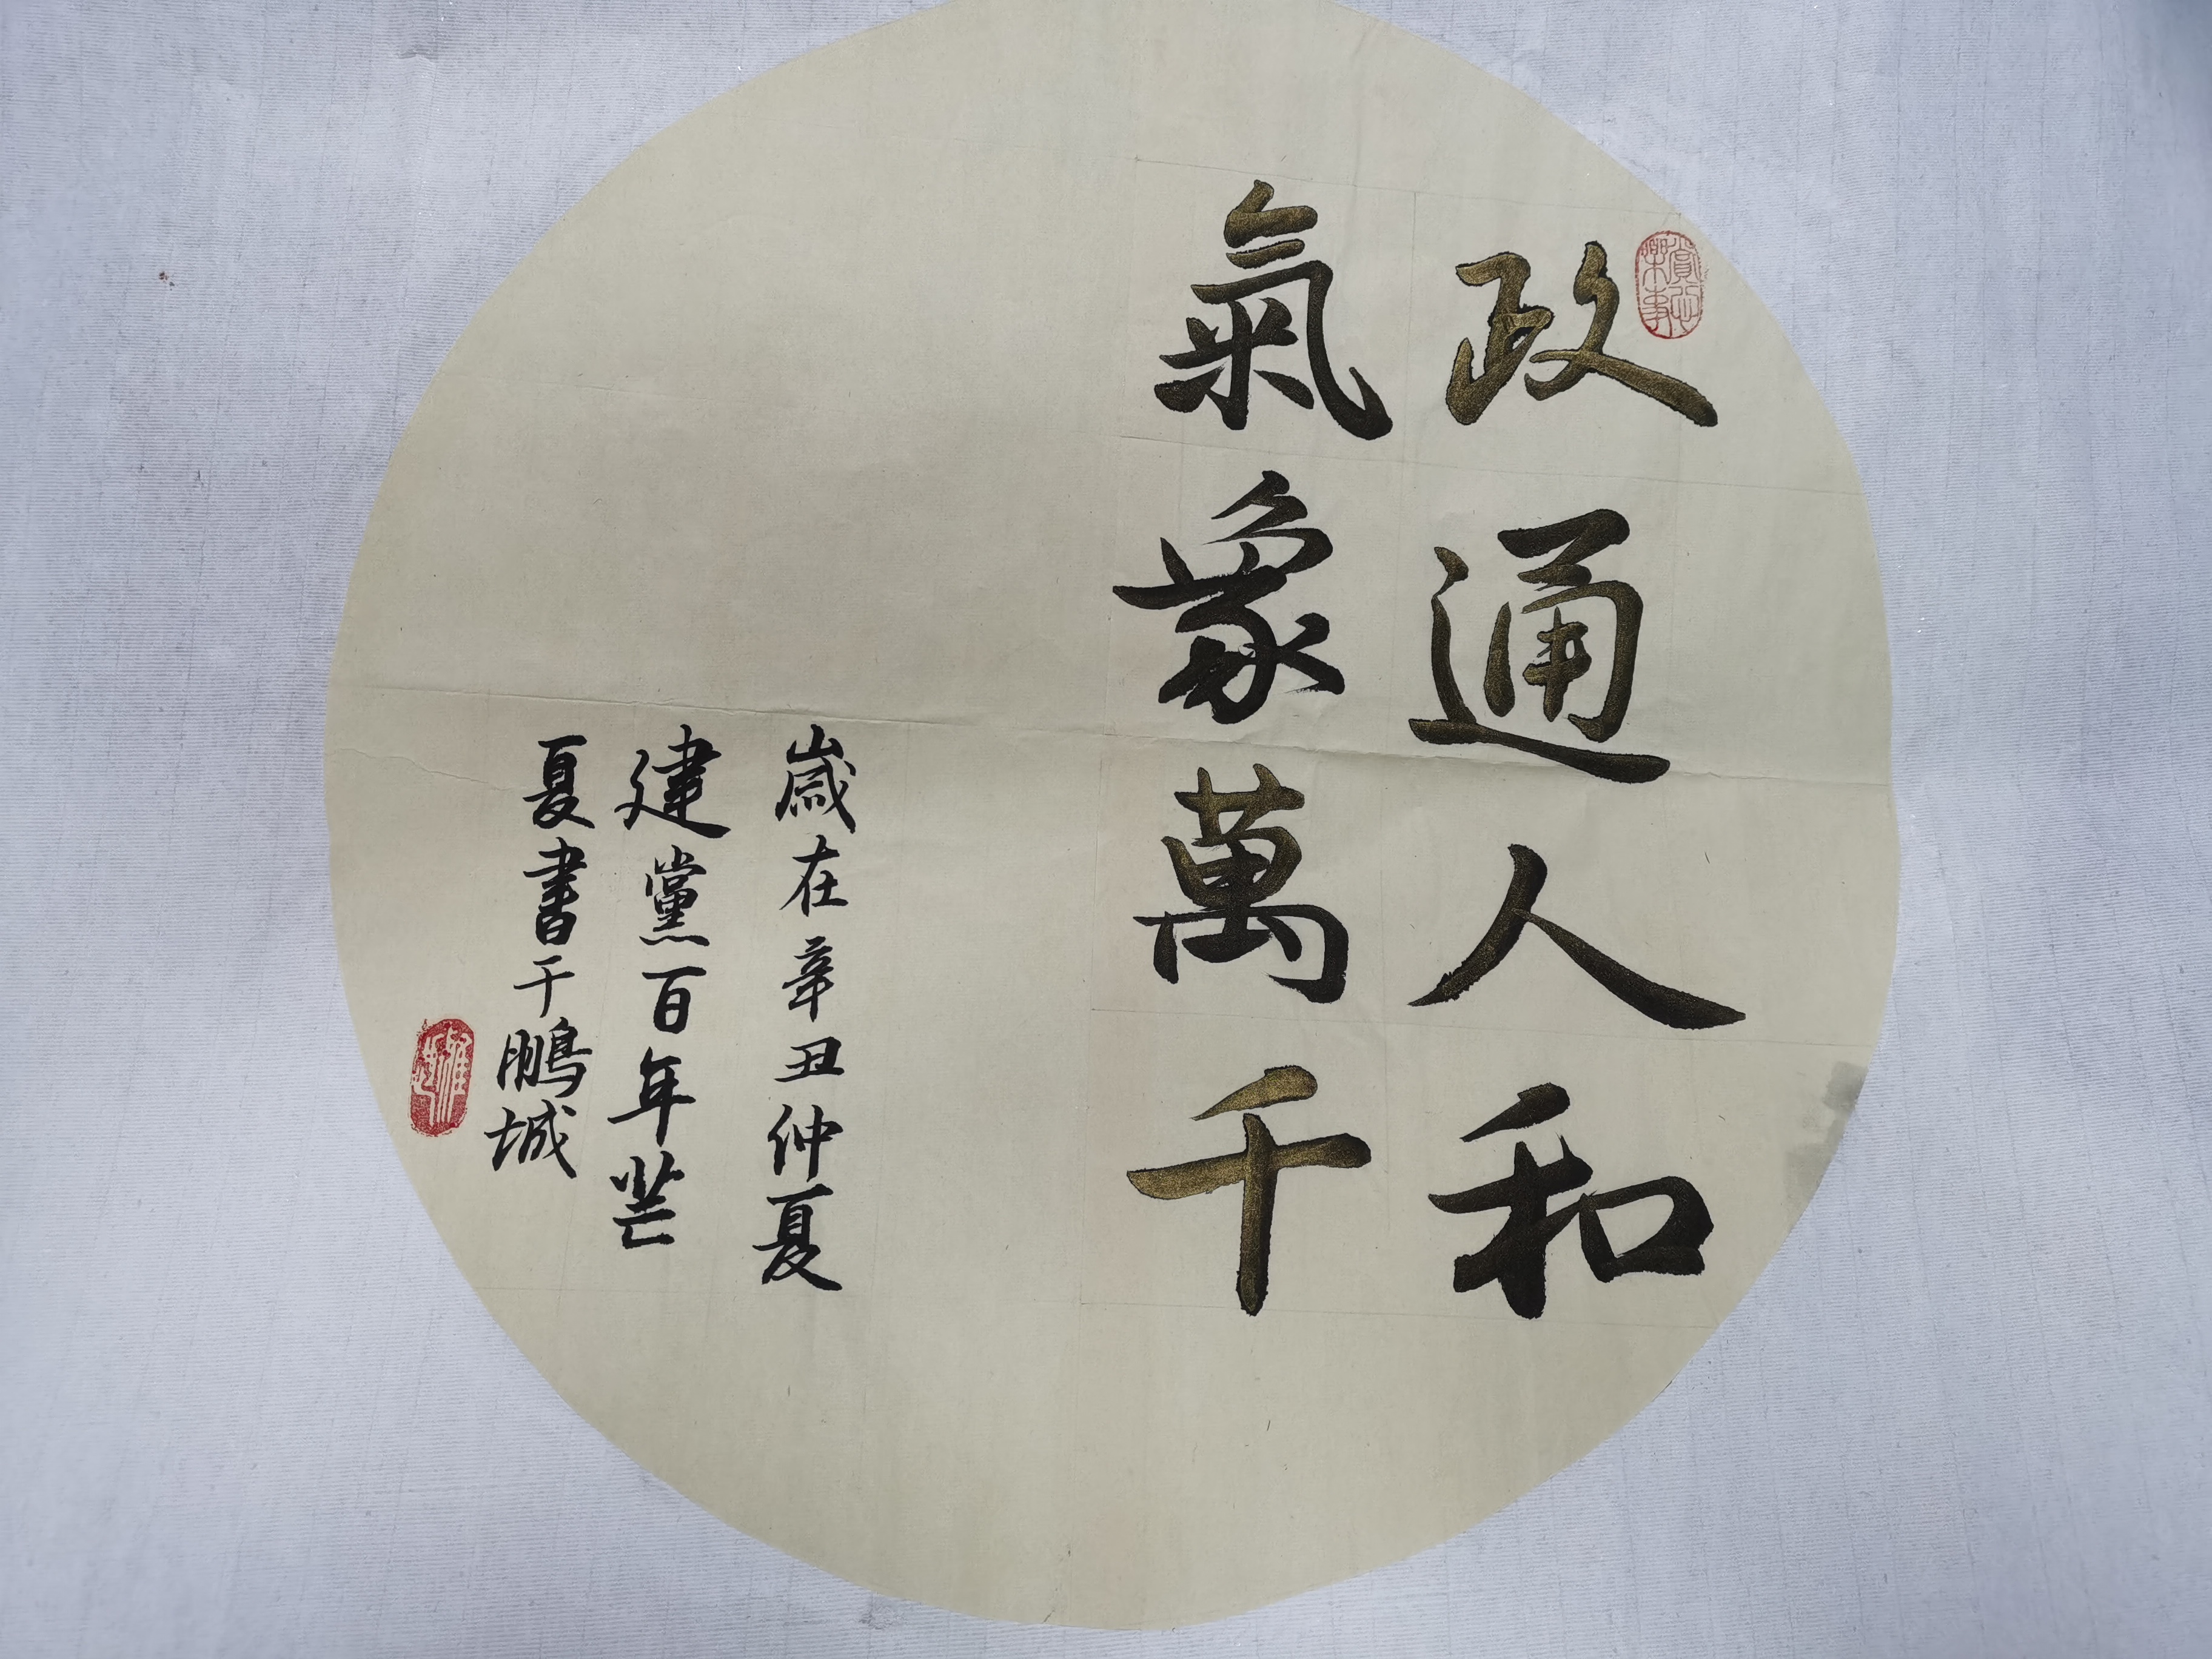 政通人和
氣象萬千
歲在辛丑仲夏
建黨百年芒
夏書于鵬城